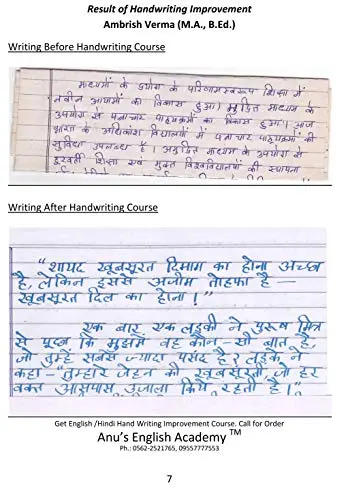 Result of Handwriting Improvement
Ambrish Verma (M.A., B.Ed.)
Writing Before Handwriting Course
माध्यमों के उपयोग के परिणामस्वरूप शिक्षा में
नवीन आयामों का विकास हुआ। मुद्रित माध्यम के
उपयोग से पत्राचार पाठ्यक्रमों का विकास हुआ। आज
भारत के अधिकांश विद्यालयों में पत्राचार पाठ्यक्रमों की
सुविधा उपलब्ध है। अमुद्रित माध्यम के उपयोग से
दूरवर्ती शिक्षा एवं मुक्त विश्वविद्यालयों की स्थापना
Writing After Handwriting Course
"शायद खूबसूरत दिमाग का होना अच्छा
है, लेकिन इससे अजीम तोहफा है –
खूबसूरत दिल का होना।"
एक बार, एक लड़की ने पुरुष मित्र
से पूछा कि मुझमें वह कौन-सी बात है,
जो तुम्हें सबसे ज्यादा पसंद है? लड़के ने
कहा – "तुम्हारे जेहन की खूबसूरती, जो हर
वक्त आसपास उजाला किये रहती है।"
Get English /Hindi Hand Writing Improvement Course. Call for Order
Anu's English Academy TM
Ph.: 0562-2521765, 09557777553
7